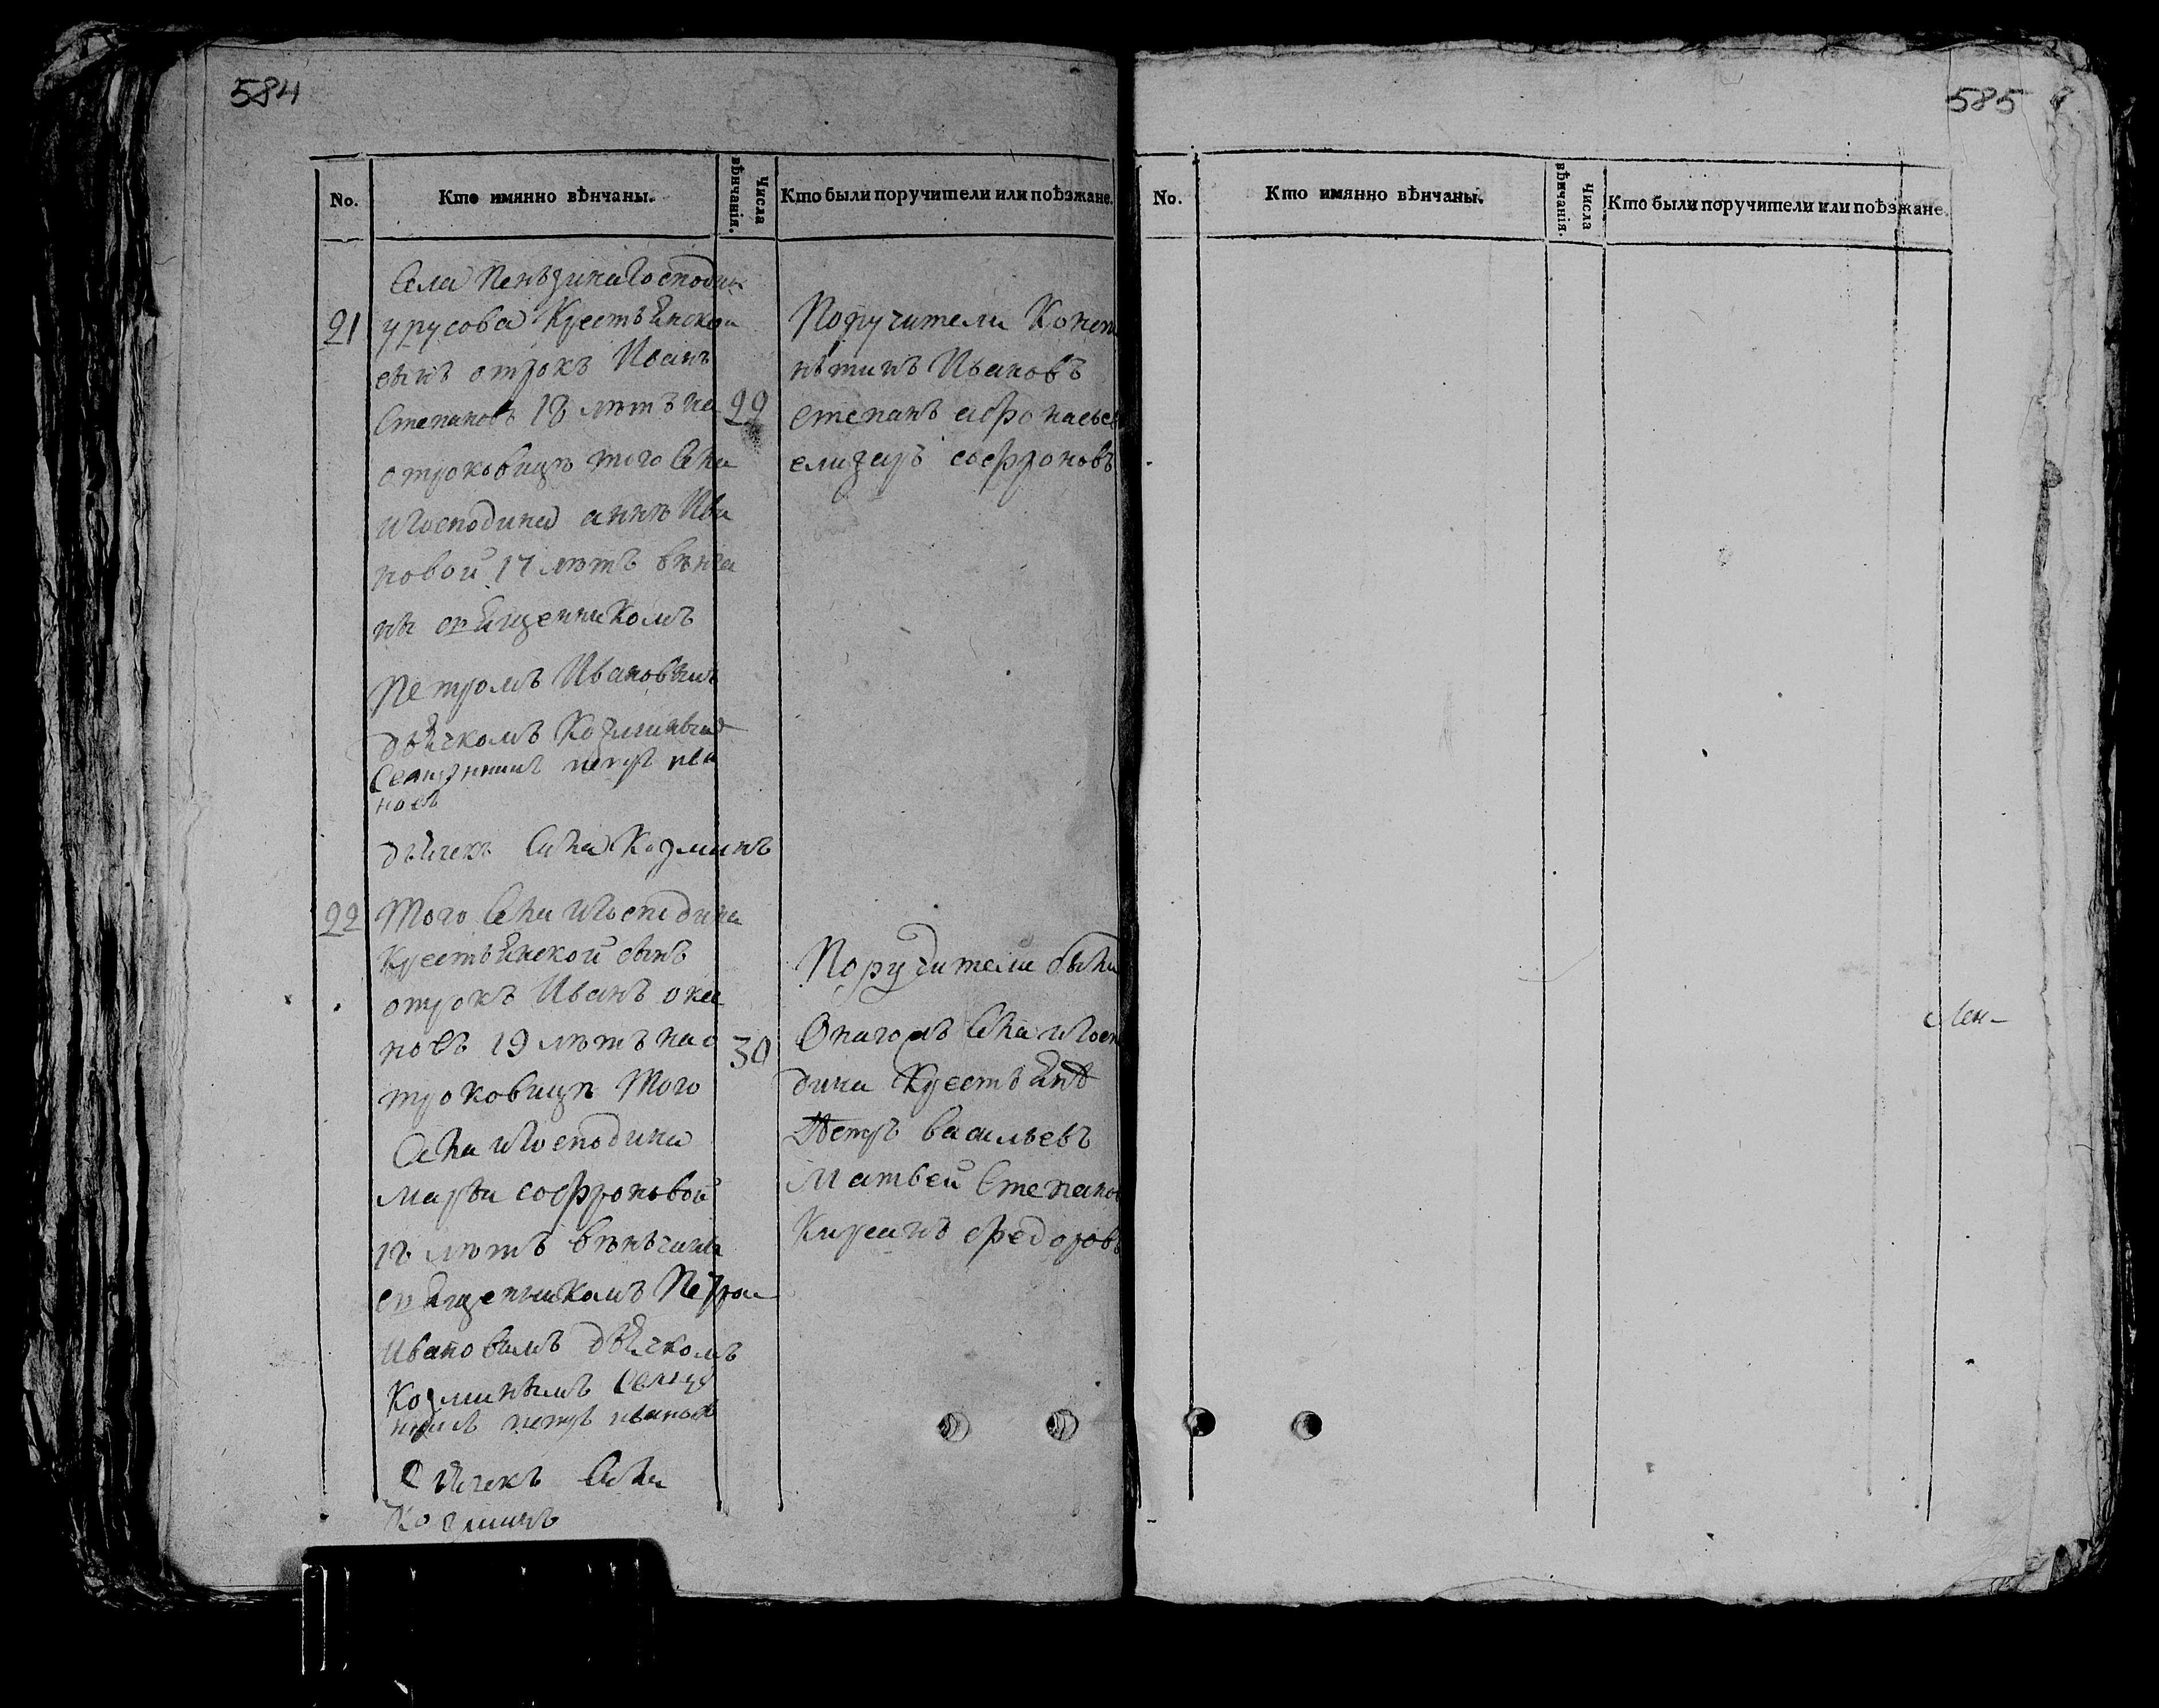 584
No.
Кто имянно вѣнчаны.
Числа вѣнчанія.
Кто были поручители или поѣзжане.
Села Пензина Господин
21
урусова Крестьянской
сынъ отрокъ Иванъ
Степановъ 18 лѣтъ на
отроковицѣ того Села
и Господина аннѣ Ива
новой 17 лѣтъ вѣнча
ны священникомъ
Петромъ Ивановымъ
дьячкомъ Козминымъ
Священникъ петръ ива
новъ
дьячекъ Козминъ
29
Поручители Конст
нтинъ Ивановъ
Степанъ афонасьев
елизаръ софроновъ
22
Того Села и Господина
Крестьянской сынъ
отрокъ Иванъ
новъ 19 лѣтъ на о
троковицѣ Того
Села и Господина
марьи софроновой
18 лѣтъ вѣнчаны
священникомъ Петром
Ивановымъ дьячкомъ
Козминымъ Свяще
нникъ петръ ивановъ
дьячекъ
Козминъ
30
Поручители были
Онагожъ Села и Госп
дина Крестьяне
Петръ васильевъ
Матвей Степанов
Кирсанъ федоровъ
585
No.
Кто имянно вѣнчаны.
Числа вѣнчанія.
Кто были поручители или поѣзжане.